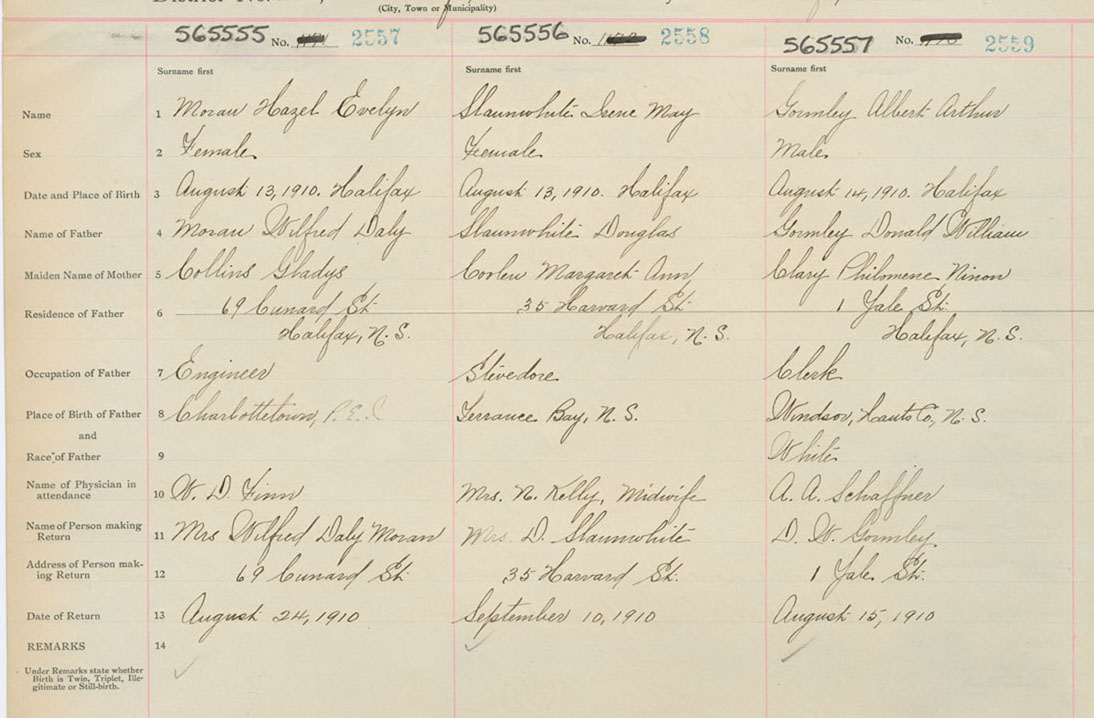 (City, Town or Municipality)
565555 No. 2557 565556 No. 2558 565557 No. 2559
Surname first Surname first Surname first
Name 1 Moran Hazel Evelyn Slaunwhite Irene May Gormley Albert Arthur
Sex 2 Female Female Male
Date and Place of Birth 3 August 13, 1910. Halifax August 13, 1910. Halifax August 14, 1910. Halifax
Name of Father 4 Moran Wilfred Daly Slaunwhite Douglas Gormley Donald William
Maiden Name of Mother 5 Collins Gladys Coolen Margaret Ann Clary Philomene Ninon
Residence of Father 6 69 Cunard St. 35 Harvard St. 1 Yale St.
Halifax, N.S. Halifax, N.S. Halifax, N.S.
Occupation of Father 7 Engineer Stevedore Clerk
Place of Birth of Father 8 Charlottetown, P.E.I Terrance Bay, N.S. Windsor, Hants Co, N.S.
and
Race of Father 9 White
Name of Physician in
attendance 10 W. D. Finn Mrs. N. Kelly, Midwife A. A. Schaffner
Name of Person making
Return 11 Mrs Wilfred Daly Moran Mrs. D. Slaunwhite D. W. Gormley
Address of Person mak-
ing Return 12 69 Cunard St. 35 Harvard St. 1 Yale St.
Date of Return 13 August 24, 1910 September 10, 1910 August 15, 1910
REMARKS 14
Under Remarks state whether
Birth is Twin, Triplet, Ille-
gitimate or Still-birth.